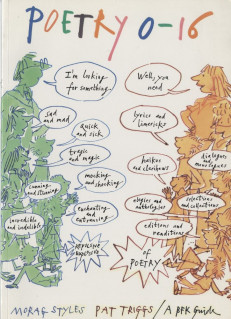 POETRY 0-16
I'm looking
for something
Well, you
need
sad
and mad
quick
and sick
tragic
and magic
mocking
and shocking
cunning
and stunning
enchanting
and entrancing
incredible
and indelible
lyrics and
limericks
haikus
and clerihews
dialogues
and
monologues
elegies and
anthologies
selections
and collections
editions and
renditions
OF
POETRY
MORAG STYLES PAT TRIGGS / A BFK Guide